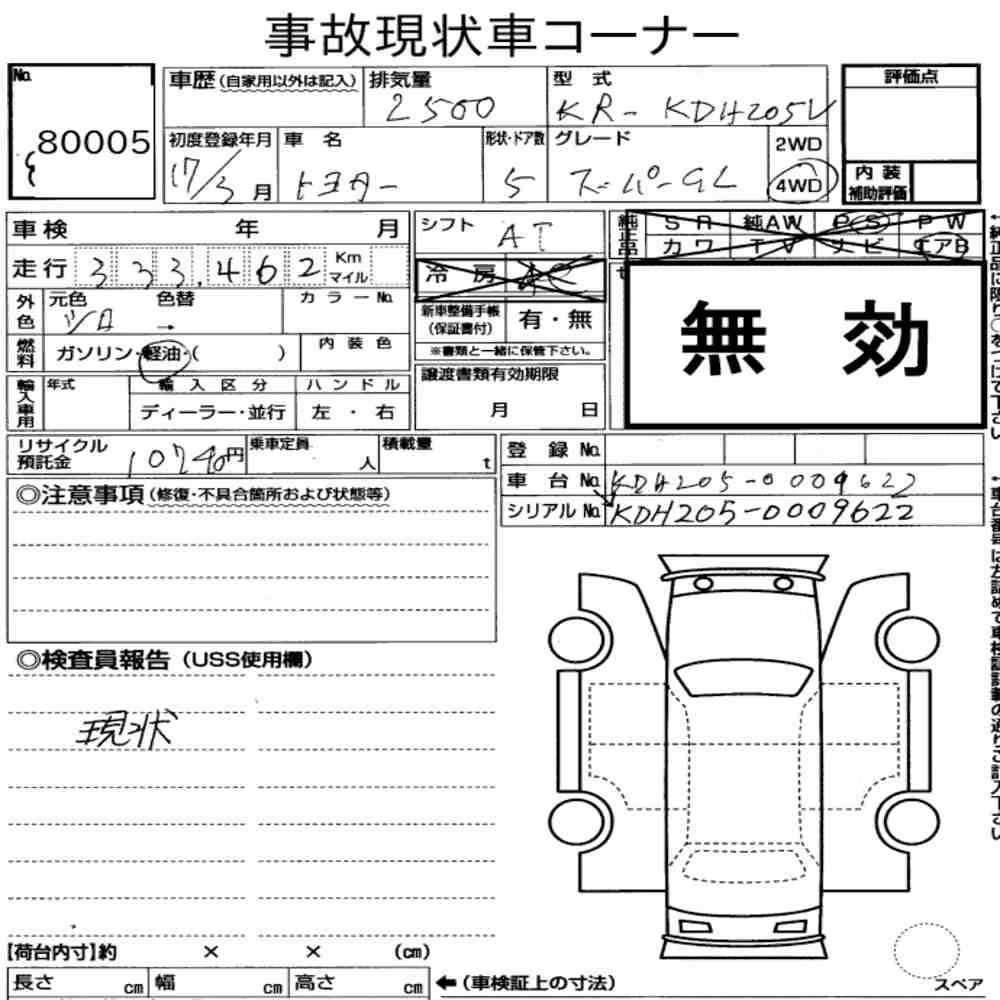 事故現状車コーナー
No. 80005
車歴(自家用以外は記入)
排気量 2500
型式 KR-KDH205V
初度登録年月 17/3月
車名 トヨタ
形状・ドア数 5
グレード スーパーGL
2WD
4WD
評価点
内装
補助評価
車検 年 月
走行 333,462 Km
マイル
外色 元色 シロ 色替 → カラーNo.
燃料 ガソリン・軽油・( ) 内装色
輸入車用 年式 輸入区分 ハンドル
ディーラー・並行 左・右
シフト AT
冷房
新車整備手帳
(保証書付) 有・無
※書類と一緒に保管下さい。
譲渡書類有効期限
月 日
純正品 SR 純AW PS PW
カワ TV ナビ エアB
無効
リサイクル
預託金 10740円
乗車定員 人
積載量 t
登録No.
車台No. KDH205-0009622
シリアルNo. KDH205-0009622
◎注意事項(修復・不具合箇所および状態等)
◎検査員報告(USS使用欄)
現状
【荷台内寸】約 × × (cm)
長さ cm 幅 cm 高さ cm
←(車検証上の寸法)
スペア
←純正品に限り○をつけて下さい